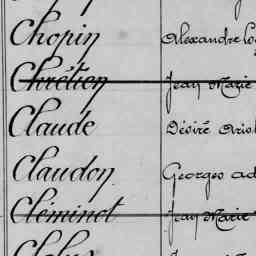 Chopin Alexandre
Chrétien Jean Marie
Claude Désiré
Claudon Georges
Cléminot Jean Marie